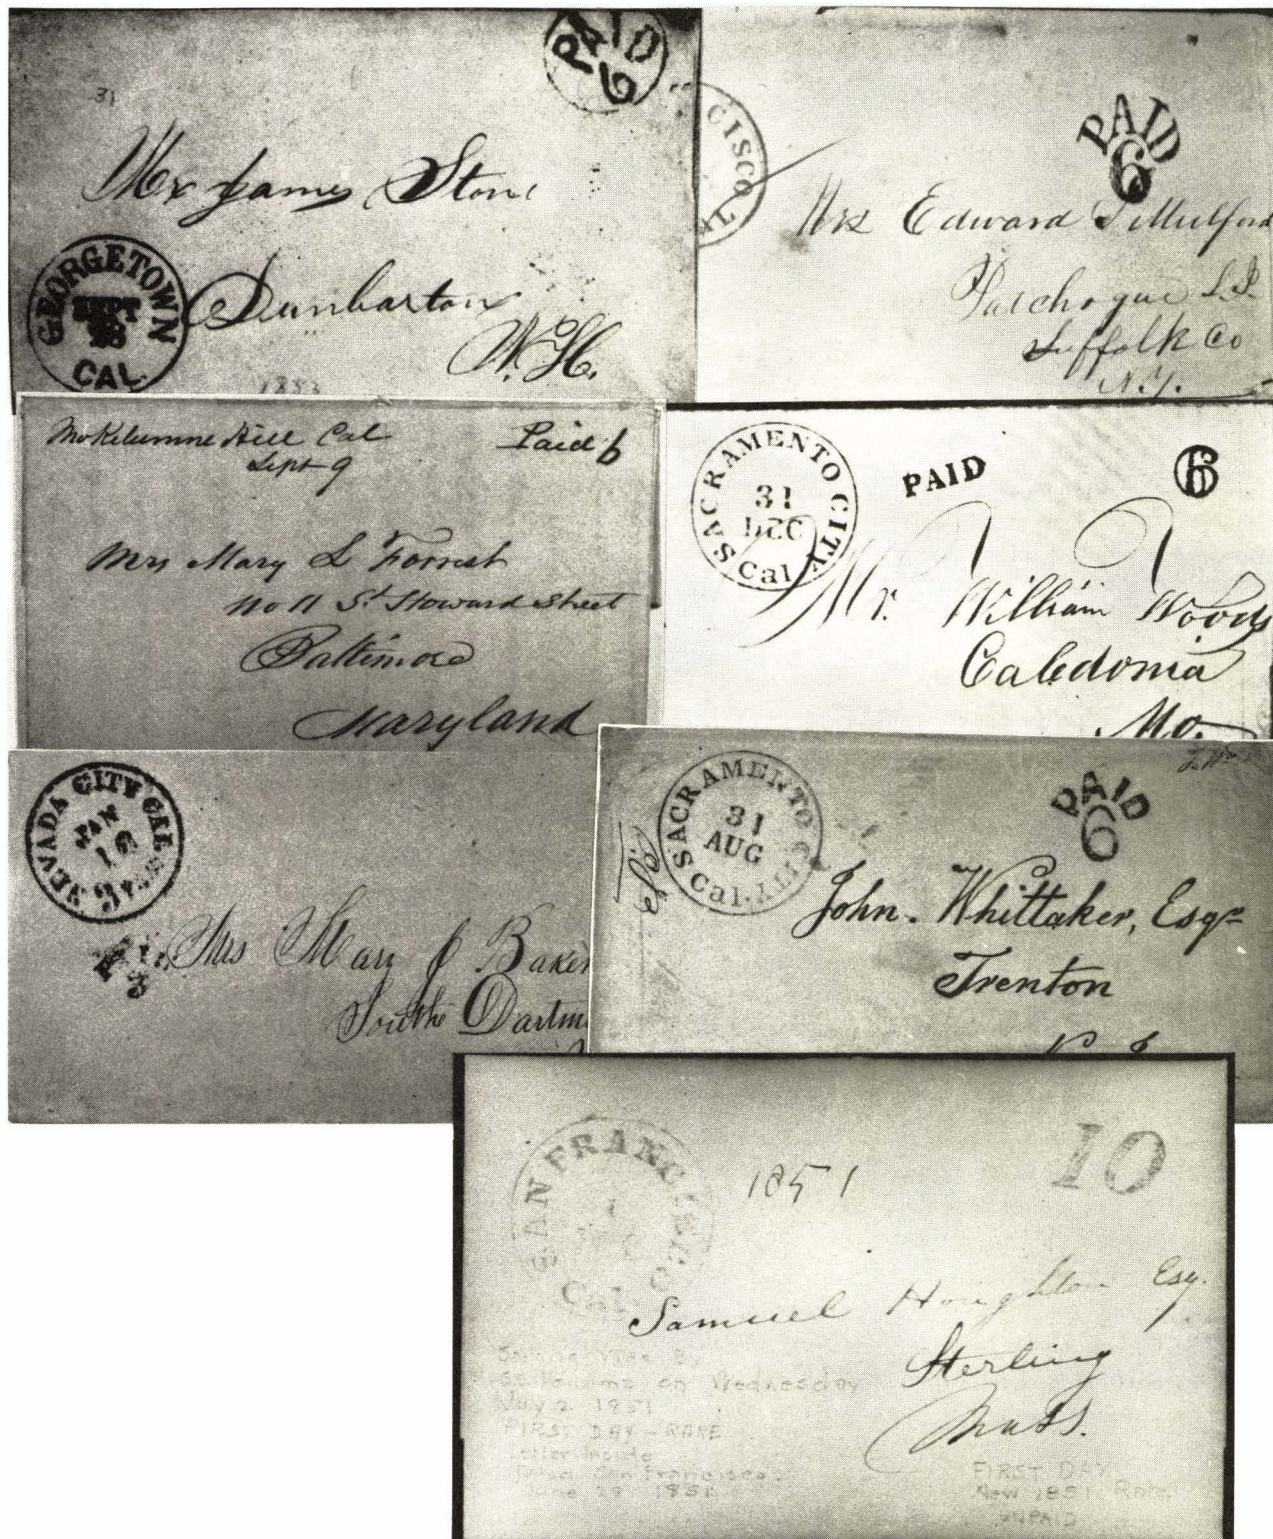 PAID
6
31
Mr James Stone
GEORGETOWN
SEPT
28
CAL.
Dunbarton
N.H.
1853
CISCO
PAID
6
Mrs Edward S Mulford
Patchogue L.I.
Suffolk Co
N.Y.
Mokelumne Hill Cal
Sept 9
Paid 6
Mrs Mary L Forrest
No 11 St Howard Street
Baltimore
Maryland
SACRAMENTO CITY
31
DEC
Cal
PAID
6
Mr. William Woods
Caledonia
Mo.
NEVADA CITY CAL
JAN
3
Mrs Mary J Baker
South Dartm
SACRAMENTO CITY
31
AUG
Cal.
PAID
6
John. Whittaker, Esqr
Trenton
N. J.
SAN FRANCISCO
1
Cal.
1851
10
Samuel Houghton Esq.
Sterling
Mass.
on Wednesday
July 2 1851
FIRST DAY - RATE
Letter inside
San Francisco
June 29 1851
FIRST DAY
New 1851 Rate
UNPAID